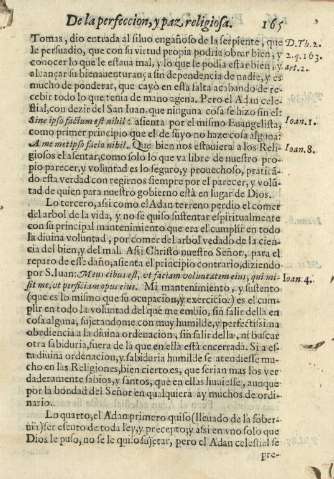 De la perfeccion, y paz, religiosa. 165
Tomas, dio entrada al siluo engañoso de la serpiente, que D. Th. 2.
le persuadio, que con su virtud propia podria obrar bien, y 2. q. 163.
conocer lo que le estaua mal, y lo que le podia estar bien, y art. 2.
alcançar su bienauenturança; sin dependencia de nadie, y es
mucho de ponderar, que cayò en esta falta acabando de re-
cebir todo lo que tenia de mano agena. Pero el Adan celes-
tial, con dezir del San Iuan, que ninguna cosa se hizo sin el:
Sine ipso factum est nihil: asienta por el mismo Euangelista, Ioan. 1.
como primer principio que el de suyo no haze cosa alguna:
A me metipso facio nihil. Que bien nos estuuiera a los Reli- Ioan. 8.
giosos el asentar, como solo lo que va libre de nuestro pro-
pio parecer, y voluntad es lo seguro, y prouechoso, pratica-
do esta verdad con regirnos siempre por el parecer, y volu-
tad de quien para nuestro gobierno està en lugar de Dios.
Lo tercero, asi como el Adan terreno perdio el comer
del arbol de la vida, y no se quiso sustentar espiritualmente
con su principal mantenimiento que era el cumplir en todo
la diuina voluntad, por comer del arbol vedado de la cien-
cia del bien, y del mal. Asi Christo nuestro Señor, para el
reparo deste daño, asienta el principio contrario, diziendo
por S. Iuan: Meus cibus est, vt faciam voluntatem eius, qui mi- Ioan. 4.
sit me, vt perficiam opus eius. Mi mantenimiento, y sustento
(que es lo mismo que su ocupacion, y exercicio) es el cum-
plir en todo la voluntad del que me embio, sin salir della en
cosa alguna, sujetandome con muy humilde, y perfectissima
obediencia a la diuina ordenacion, sin salir della, ni buscar
otra sabiduria, fuera de la que en ella està encerrada. Si a es-
ta diuina ordenacion, y sabiduria humilde se atendiesse mu-
cho en las Religiones, bien cierto es, que serian mas los ver-
daderamente sabios, y santos, que en ellas huuiesse, aunque
por la bondad del Señor en qualquiera ay muchos de ordi-
nario.
Lo quarto, el Adan primero quiso (lleuado de la sober-
uia) ser esento de toda ley, y precepto, y asi en vno solo que
Dios le puso, no se le quiso sujetar, pero el Adan celestial se
pre-